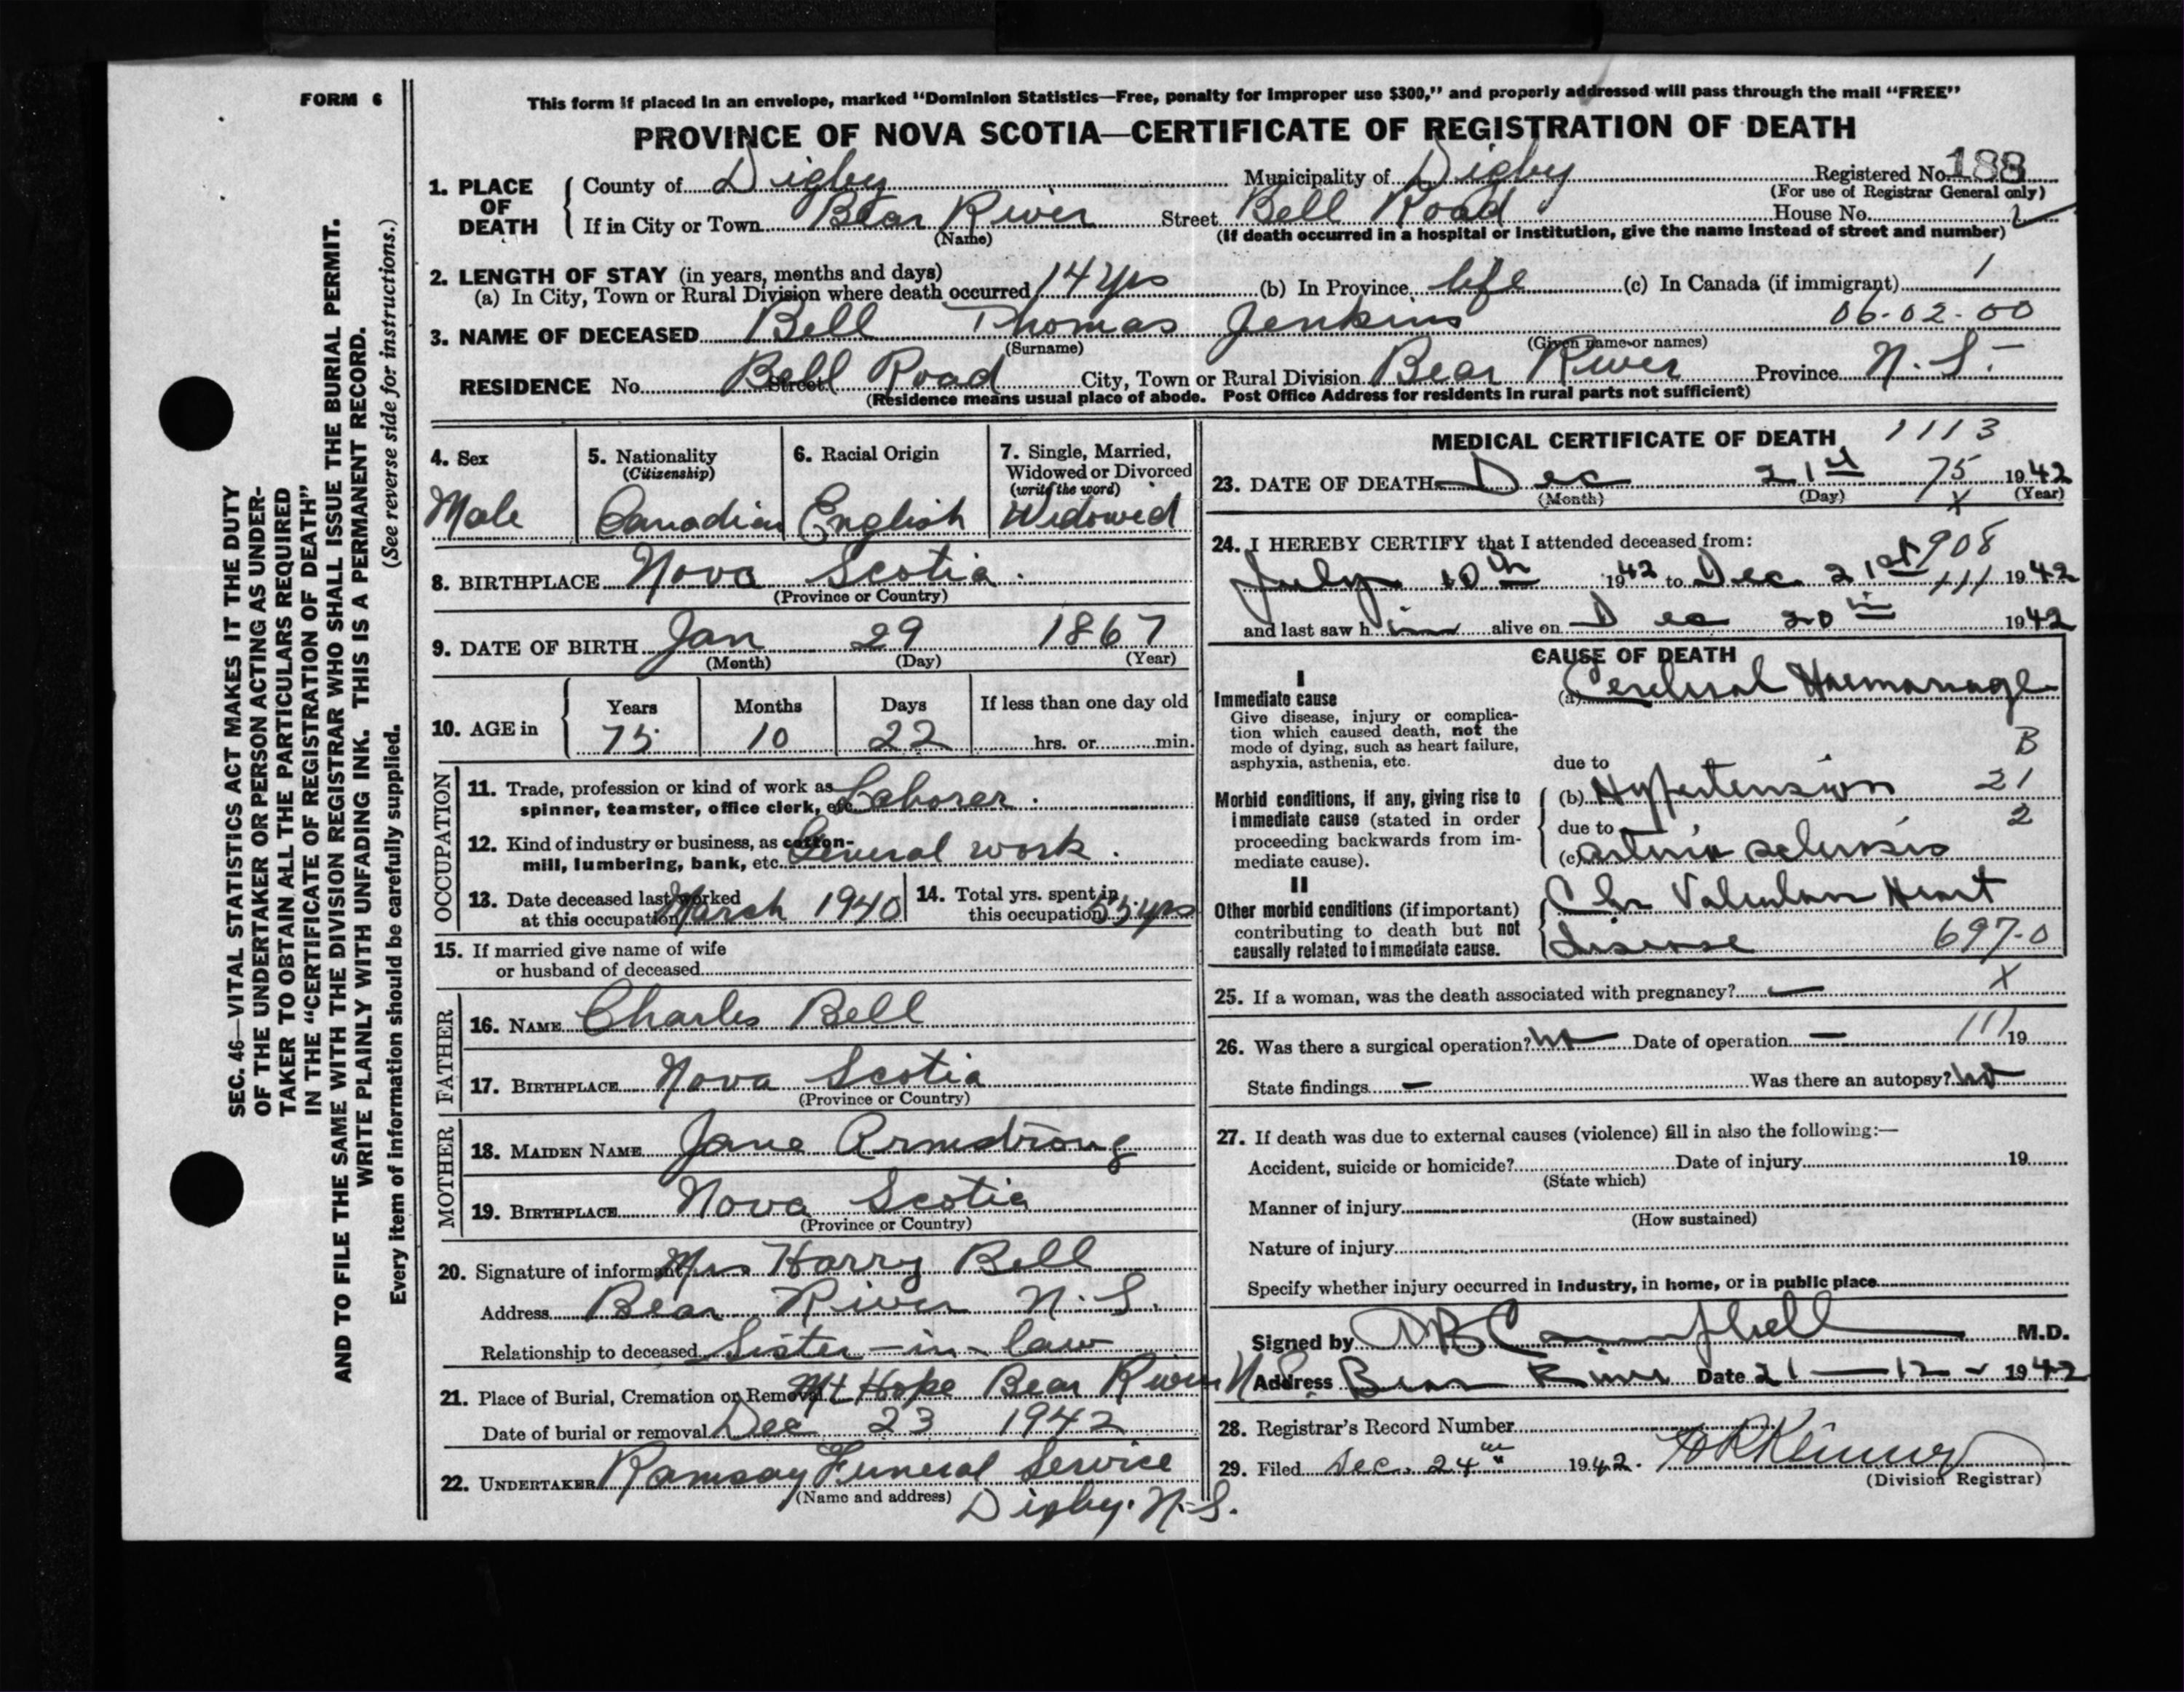 FORM 6
This form if placed in an envelope, marked "Dominion Statistics—Free, penalty for improper use $300," and properly addressed will pass through the mail "FREE"
PROVINCE OF NOVA SCOTIA—CERTIFICATE OF REGISTRATION OF DEATH
SEC. 46—VITAL STATISTICS ACT MAKES IT THE DUTY
OF THE UNDERTAKER OR PERSON ACTING AS UNDER-
TAKER TO OBTAIN ALL THE PARTICULARS REQUIRED
IN THE "CERTIFICATE OF REGISTRATION OF DEATH"
AND TO FILE THE SAME WITH THE DIVISION REGISTRAR WHO SHALL ISSUE THE BURIAL PERMIT.
WRITE PLAINLY WITH UNFADING INK. THIS IS A PERMANENT RECORD.
(See reverse side for instructions.)
Every item of information should be carefully supplied.
1. PLACE OF DEATH County of Digby Municipality of Digby Registered No. 188
(For use of Registrar General only)
If in City or Town Bear River Street Bell Road House No.
(Name) (If death occurred in a hospital or institution, give the name instead of street and number)
2. LENGTH OF STAY (in years, months and days)
(a) In City, Town or Rural Division where death occurred 14 yrs (b) In Province life (c) In Canada (if immigrant) 1
06-02-00
3. NAME OF DECEASED Bell Thomas Jenkins
(Surname) (Given name or names)
RESIDENCE No. Bell Road Street City, Town or Rural Division Bear River Province N.S.
(Residence means usual place of abode. Post Office Address for residents in rural parts not sufficient)
4. Sex
Male
5. Nationality
(Citizenship)
Canadian
6. Racial Origin
English
7. Single, Married,
Widowed or Divorced
(write the word)
Widowed
8. BIRTHPLACE Nova Scotia.
(Province or Country)
9. DATE OF BIRTH Jan 29 1867
(Month) (Day) (Year)
10. AGE in Years Months Days If less than one day old
75 10 22 hrs. or min.
OCCUPATION
11. Trade, profession or kind of work as Laborer.
spinner, teamster, office clerk, etc.
12. Kind of industry or business, as cotton-
mill, lumbering, bank, etc. General work.
13. Date deceased last worked
at this occupation March 1940
14. Total yrs. spent in
this occupation 55 yrs
15. If married give name of wife
or husband of deceased
FATHER
16. NAME Charles Bell
17. BIRTHPLACE Nova Scotia
(Province or Country)
MOTHER
18. MAIDEN NAME Jane Armstrong
19. BIRTHPLACE Nova Scotia
(Province or Country)
20. Signature of informant Mrs Harry Bell
Address Bear River N.S.
Relationship to deceased Sister-in-law
21. Place of Burial, Cremation or Removal Mt Hope Bear River N.S.
Date of burial or removal Dec 23 1942
22. UNDERTAKER Ramsay Funeral Service
(Name and address) Digby. N.S.
MEDICAL CERTIFICATE OF DEATH 1113
23. DATE OF DEATH Dec 21st 75 1942
(Month) (Day) x (Year)
24. I HEREBY CERTIFY that I attended deceased from:
908
July 10th 1942 to Dec 21st 111 1942
and last saw him alive on Dec 20th 1942
CAUSE OF DEATH
I
Immediate cause
Give disease, injury or complica-
tion which caused death, not the
mode of dying, such as heart failure,
asphyxia, asthenia, etc.
(a) Cerebral Haemorrhage
B
due to
Morbid conditions, if any, giving rise to
immediate cause (stated in order
proceeding backwards from im-
mediate cause).
(b) Hypertension 21
due to 2
(c) arterio sclerosis
II
Other morbid conditions (if important)
contributing to death but not
causally related to immediate cause.
Chr Valvular Heart
disease 697-0
25. If a woman, was the death associated with pregnancy? — x
26. Was there a surgical operation? no Date of operation — 111 19
State findings — Was there an autopsy? no
27. If death was due to external causes (violence) fill in also the following:—
Accident, suicide or homicide? Date of injury 19
(State which)
Manner of injury
(How sustained)
Nature of injury
Specify whether injury occurred in industry, in home, or in public place
Signed by Campbell M.D.
Address Bear River Date 21—12-1942
28. Registrar's Record Number
29. Filed Dec. 24th 1942.
(Division Registrar)